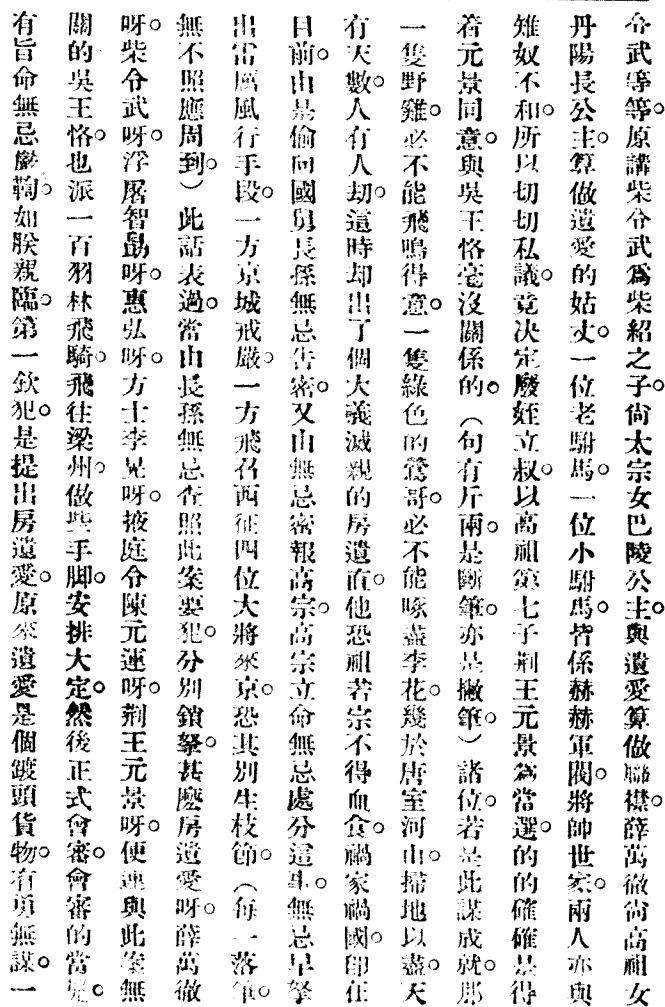 令武等等。原講柴令武爲柴紹之子。尙太宗女巴陵公主。與遺愛算做聯襟。薛萬徹尙高祖女
丹陽長公主。算做遺愛的姑丈。一位老駙馬。一位小駙馬。皆係赫赫軍閥。將帥世家。兩人亦與
雉奴不和。所以切切私議。竟决定廢姪立叔。以高祖第七子荆王元景爲當選的。的確確是得
着元景同意。與吳王恪毫沒關係的。（句有斤兩。是斷筆亦是撇筆。）諸位若是此謀成就。那
一隻野雞。必不能飛鳴得意。一隻綠色的鶯哥。必不能啄盡李花。幾於唐室河山。掃地以盡。天
有天數。人有人劫。這時却出了個大義滅親的房遺直。他恐祖若宗不得血食。禍家禍國。即在
目前。由是偷向國舅長孫無忌告密。又由無忌密報高宗。高宗立命無忌處分這事。無忌早拏
出雷厲風行手段。一方京城戒嚴。一方飛召西征四位大將來京。恐其別生枝節。（每一落筆。
無不照應周到）此話表過。當由長孫無忌查照此案要犯。分別鎖拏。甚麽房遺愛呀。薛萬徹
呀。柴令武呀。浮屠智勗呀。惠弘呀。方士李晃呀。掖庭令陳元運呀。荆王元景呀。便連與此案無
關的吳王恪。也派一百羽林飛騎。飛往梁州。做些手脚。安排大定。然後正式會審。會審的當兒。
有旨命無忌嚴鞫。如朕親臨。第一欽犯。是提出房遺愛。原來遺愛是個鍍頭貨物。有勇無謀。一